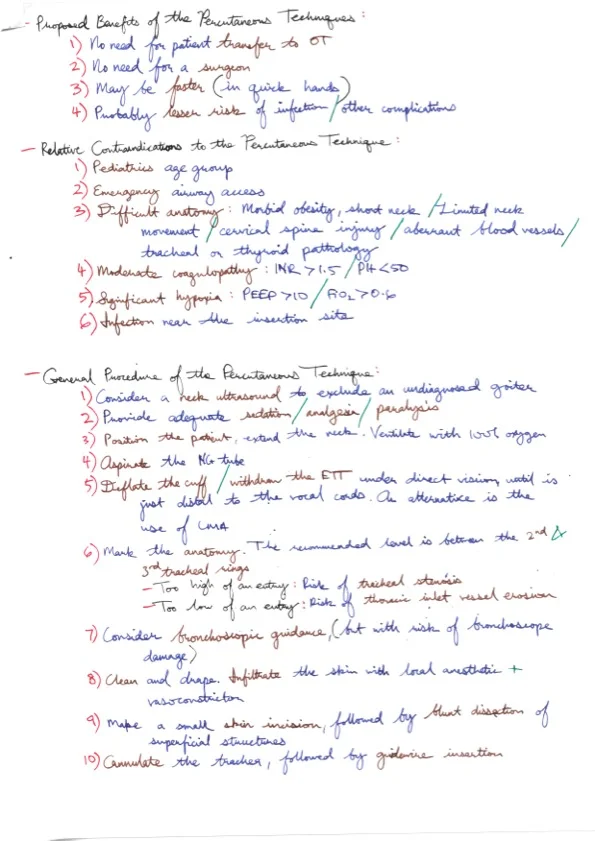 - Proposed Benefits of the Percutaneous Techniques:
1) No need for patient transfer to OT
2) No need for a surgeon
3) May be faster (in quick hands)
4) Probably lesser risk of infection/other complications
- Relative Contraindications to the Percutaneous Technique:
1) Pediatrics age group
2) Emergency airway access
3) Difficult anatomy: Morbid obesity, short neck/Limited neck
movement/cervical spine injury/aberrant blood vessels/
tracheal or thyroid pathology
4) Moderate coagulopathy: INR >1.5/Plt <50
5) Significant hypoxia: PEEP >10/FiO2 >0.6
6) Infection near the insertion site
- General Procedure of the Percutaneous Technique:
1) Consider a neck ultrasound to exclude an undiagnosed goiter
2) Provide adequate sedation/analgesia/paralysis
3) Position the patient, extend the neck. Ventilate with 100% oxygen
4) Aspirate the NG tube
5) Deflate the cuff/withdraw the ETT under direct vision, until is
just distal to the vocal cords. An alternative is the
use of LMA
6) Mark the anatomy. The recommended level is between the 2nd &
3rd tracheal rings
- Too high of an entry: Risk of tracheal stenosis
- Too low of an entry: Risk of thoracic inlet vessel erosion
7) Consider bronchoscopic guidance, (but with risk of bronchoscope
damage)
8) Clean and drape. Infiltrate the skin with local anesthetic +
vasoconstrictor
9) Make a small skin incision, followed by blunt dissection of
superficial structures
10) Cannulate the trachea, followed by guidewire insertion